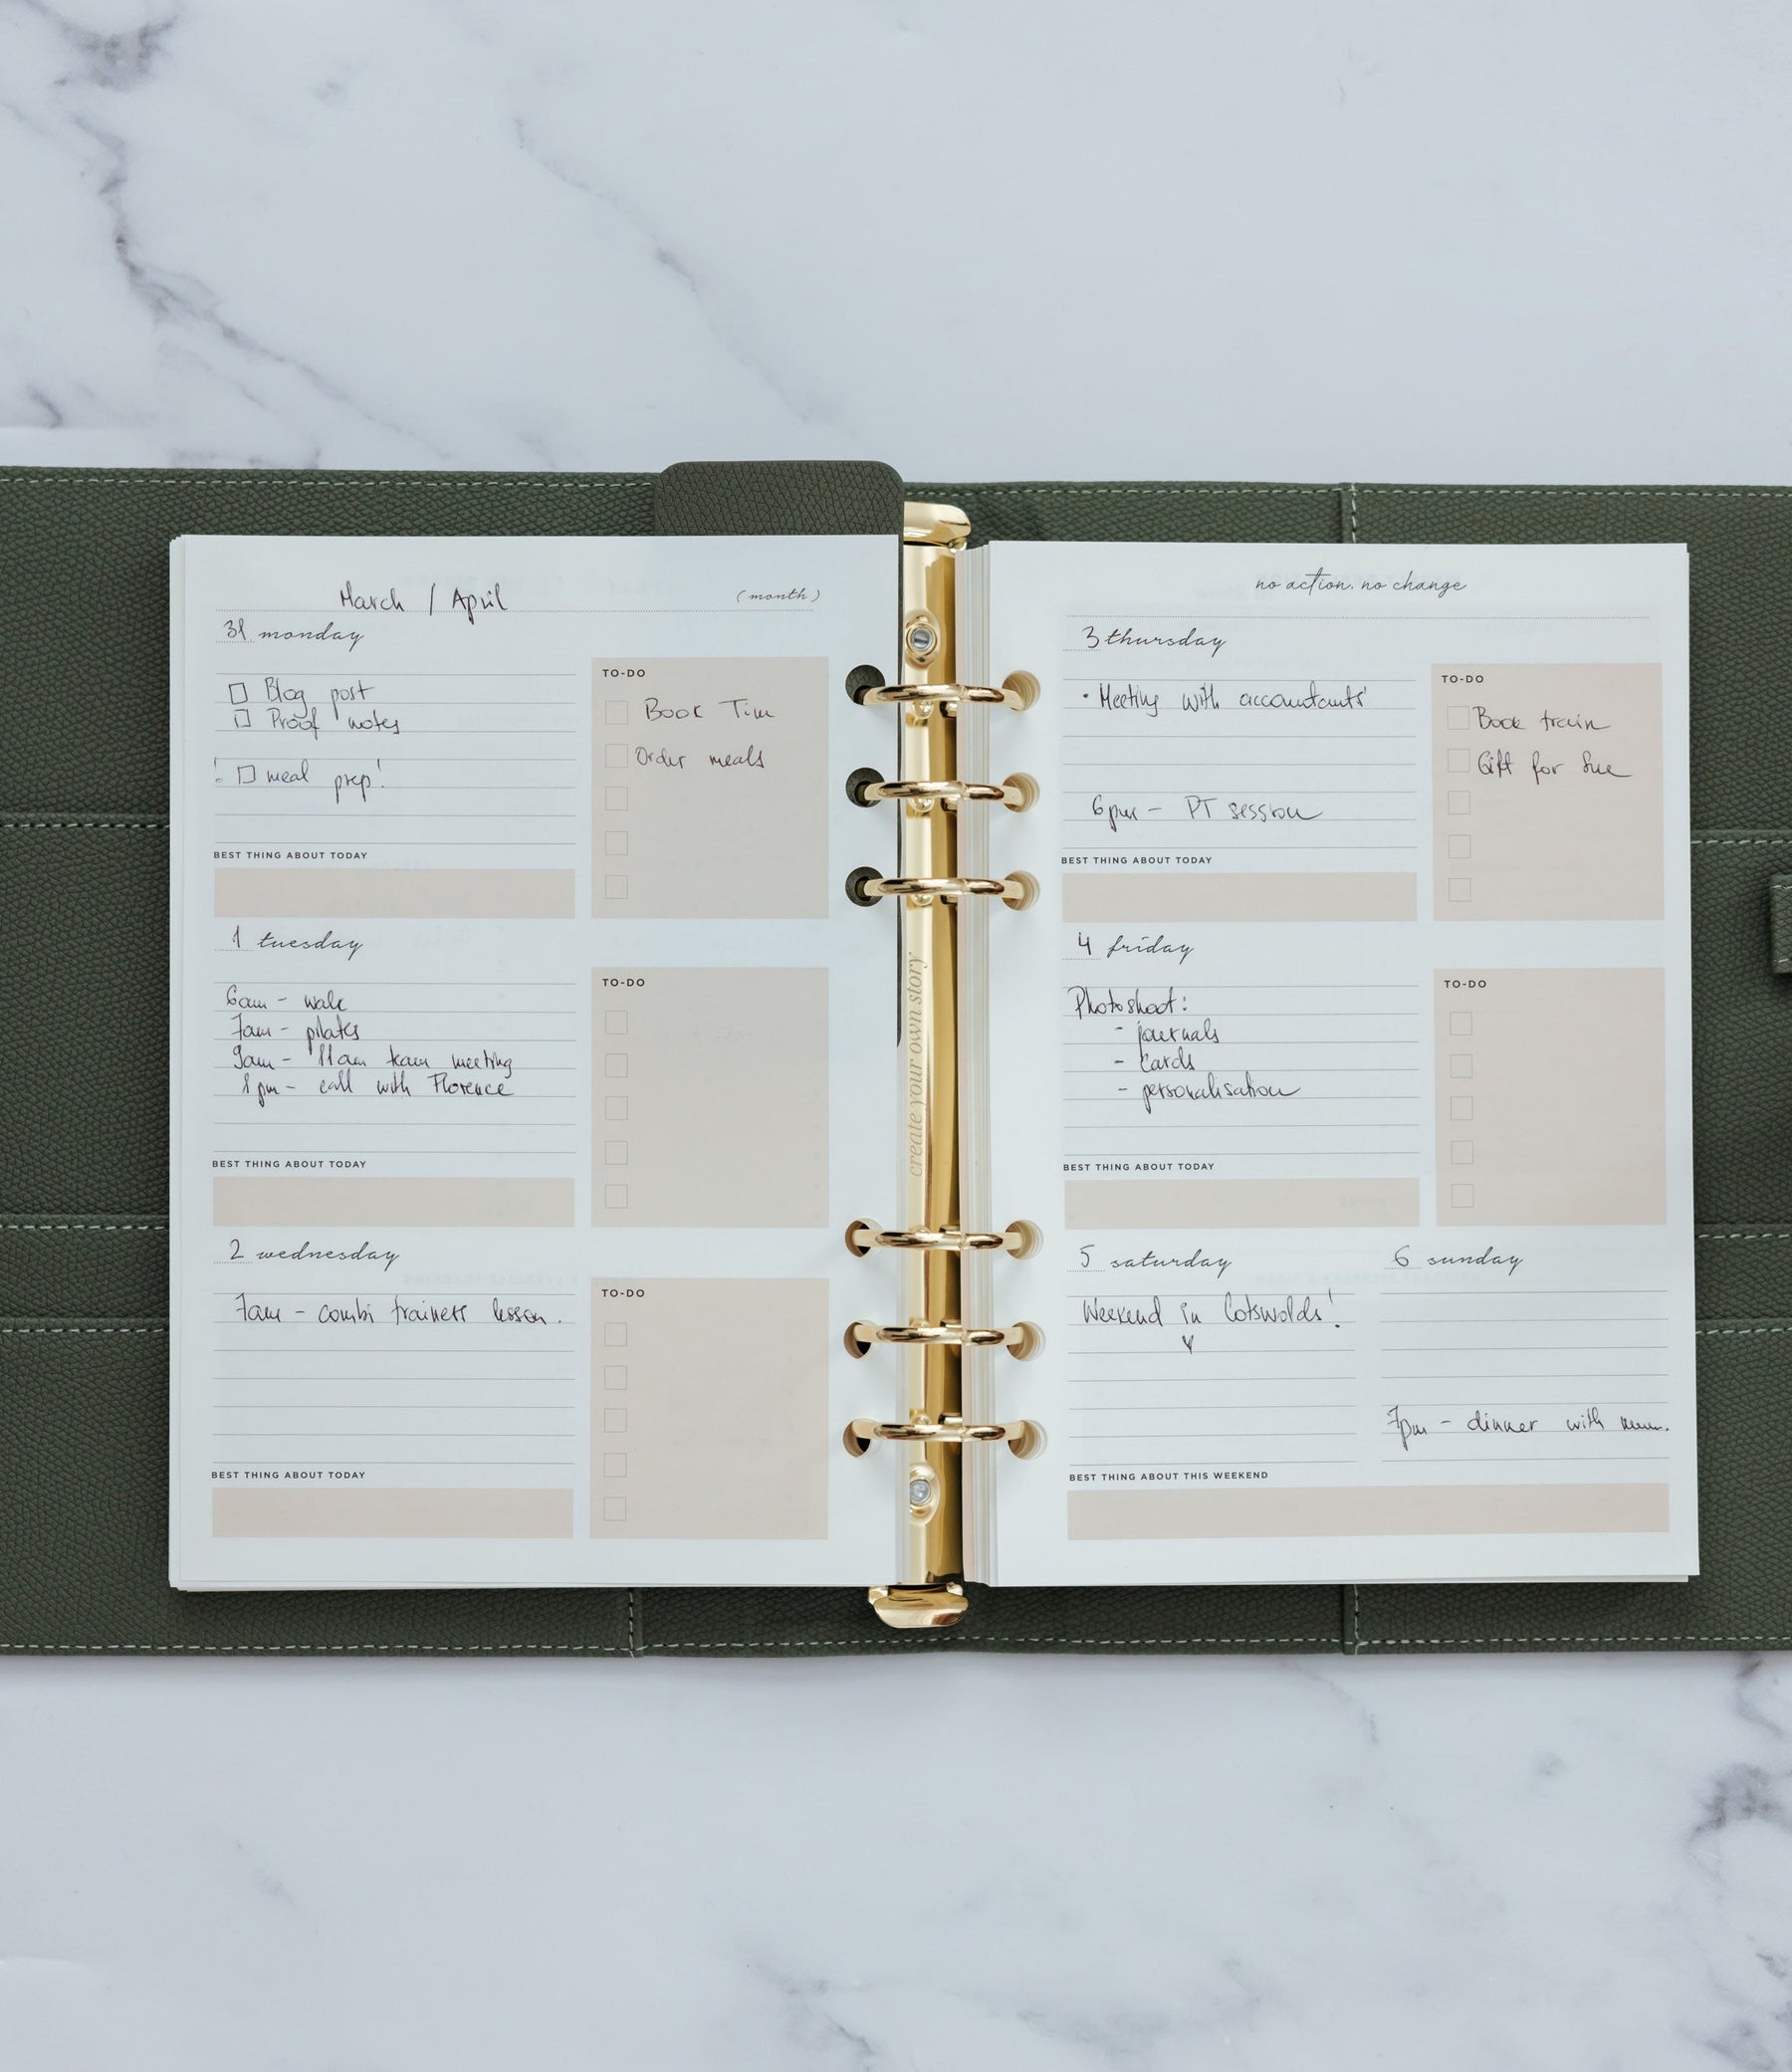 March / April (month)
31 monday
Blog post
Proof notes
! meal prep!
TO-DO
Book Tim
Order meals
BEST THING ABOUT TODAY
1 tuesday
6am - walk
7am - pilates
9am - 11am team meeting
1pm - call with Florence
TO-DO
BEST THING ABOUT TODAY
2 wednesday
7am - combi trainers lesson.
TO-DO
BEST THING ABOUT TODAY
create your own story
no action, no change
3 thursday
• Meeting with accountants
6pm - PT session
TO-DO
Book train
Gift for Sue
BEST THING ABOUT TODAY
4 friday
Photoshoot:
- journals
- cards
- personalisation
TO-DO
BEST THING ABOUT TODAY
5 saturday
Weekend in Cotswolds!
6 sunday
7pm - dinner with mum.
BEST THING ABOUT THIS WEEKEND